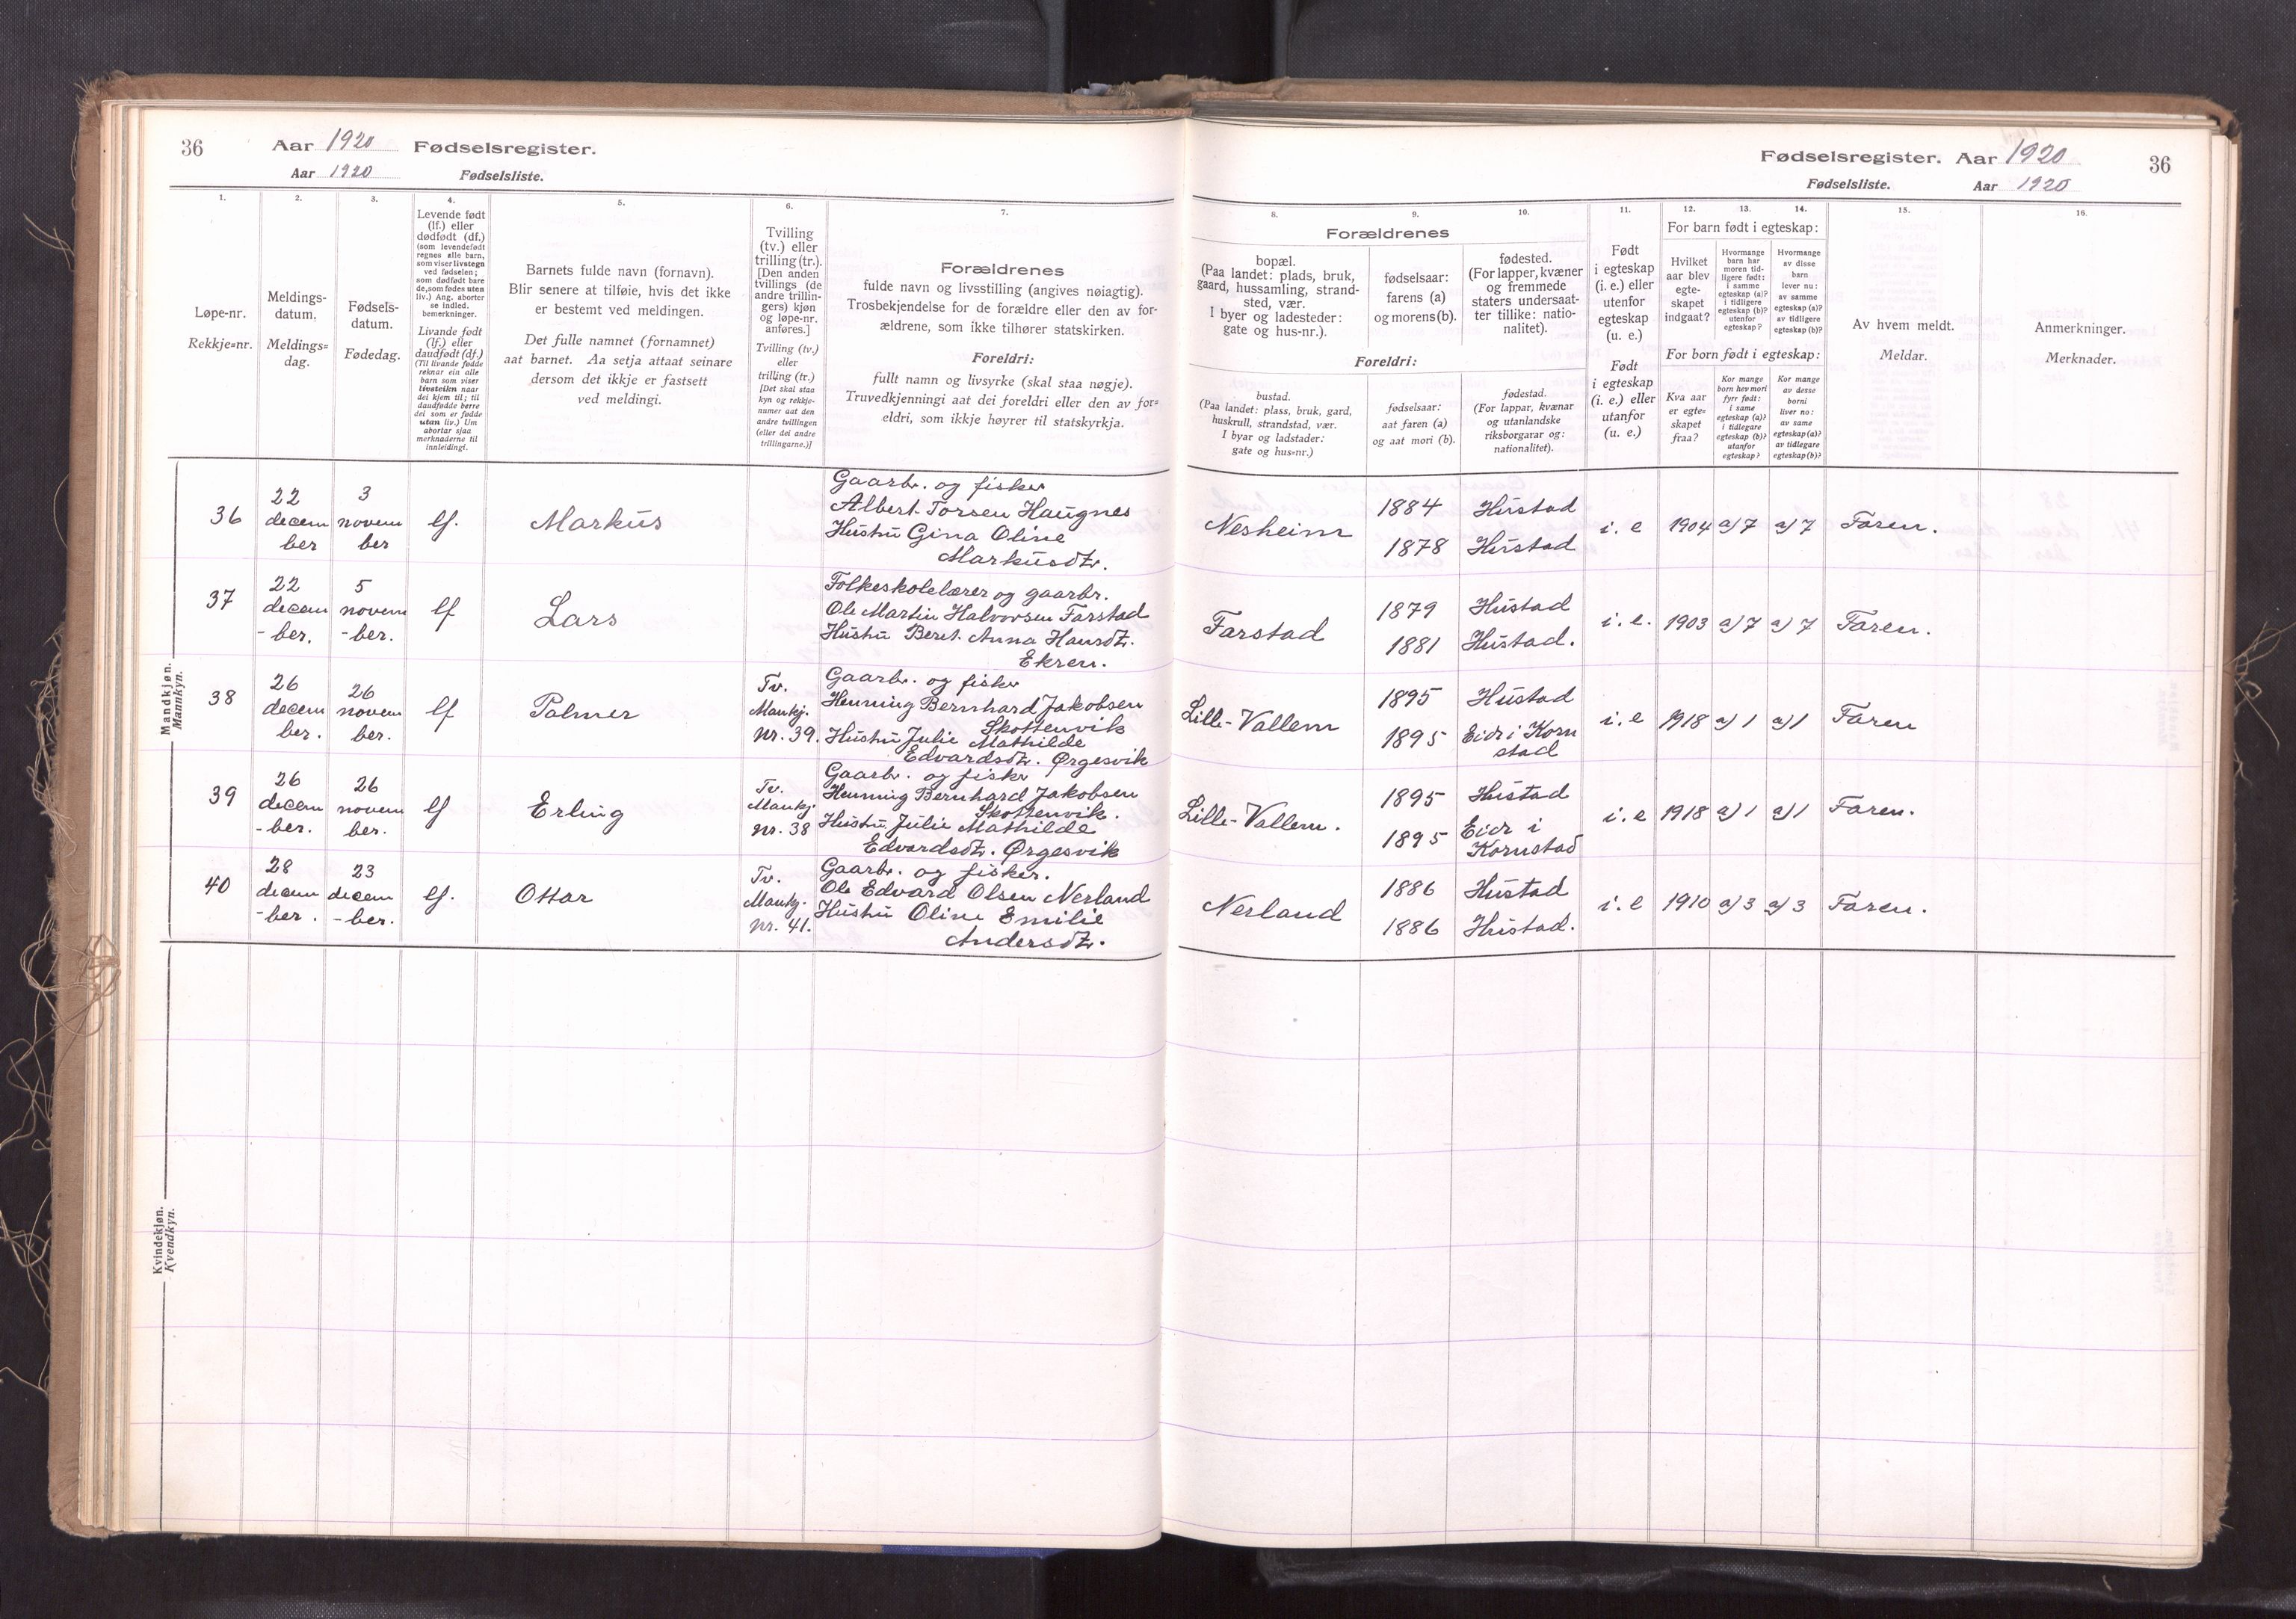 36
Aar 1920 Fødselsregister.
Aar 1920 Fødselsliste.
Fødselsregister. Aar 1920
36
Fødselsliste. Aar 1920
1.
Løpe-nr.
Rekkje=nr.
2.
Meldings-
datum.
Meldings=
dag.
3.
Fødsels-
datum.
Fødedag.
4.
Levende født
(lf.) eller
dødfødt (df.)
(som levendefødt
regnes alle barn,
som viser livstegn
ved fødselen;
som dødfødt bare
de, som fødes uten
liv.) Ang. aborter
se indled.
bemerkninger.
Livande født
(lf.) eller
daudfødt (df.)
(Til livande fødde
reknar ein alle
barn som viser
livsteikn naar
dei kjem til; til
daudfødde berre
dei som er fødde
utan liv.) Um
abortar sjaa
merknaderne til
innleidingi.
5.
Barnets fulde navn (fornavn).
Blir senere at tilføie, hvis det ikke
er bestemt ved meldingen.
Det fulle namnet (fornamnet)
aat barnet. Aa setja attaat seinare
dersom det ikkje er fastsett
ved meldingi.
6.
Tvilling
(tv.) eller
trilling (tr.).
[Den anden
tvillings (de
andre trillin-
gers) kjøn
og løpe-nr.
anføres.]
Tvilling (tv.)
eller
trilling (tr.)
[Det skal staa
kyn og rekkje-
numer aat den
andre tvillingen
(eller dei andre
trillingarne.)]
7.
Forældrenes
fulde navn og livsstilling (angives nøiagtig).
Trosbekjendelse for de forældre eller den av for-
ældrene, som ikke tilhører statskirken.
Foreldri:
fullt namn og livsyrke (skal staa nøgje).
Truvedkjenningi aat dei foreldri eller den av for=
eldri, som ikkje høyrer til statskyrkja.
8.
Forældrenes
bopæl.
(Paa landet: plads, bruk,
gaard, hussamling, strand-
sted, vær.
I byer og ladesteder:
gate og hus-nr.).
Foreldri:
bustad.
(Paa landet: plass, bruk, gard,
huskrull, strandstad, vær.
I byar og ladstader:
gate og hus=nr.)
9.
fødselsaar:
farens (a)
og morens (b).
fødselsaar:
aat faren (a)
og aat mori (b).
10.
fødested.
(For lapper, kvæner
og fremmede
staters undersaat-
ter tillike: natio-
nalitet).
fødestad.
(For lappar, kvænar
og utanlandske
riksborgarar og:
nationalitet).
11.
Født
i egteskap
(i. e.) eller
utenfor
egteskap
(u. e.)
Født
i egteskap
(i. e.) eller
utanfor
(u. e.)
12. 13. 14.
For barn født i egteskap:
Hvilket
aar blev
egte-
skapet
indgaat?
Hvormange
barn har
moren tid-
ligere født:
i samme
egteskap (a)?
i tidligere
egteskap (b)?
utenfor
egteskap?
Hvormange
av disse
barn
lever nu:
av samme
egteskap (a)?
av tidligere
egteskap (b)?
For born født i egteskap:
Kva aar
er egte=
skapet
fraa?
Kor mange
born hev mori
fyrr født:
i same
egteskap (a)?
i tidlegare
egteskap (b)?
utanfor
egteskap?
Kor mange
av desse
borni
liver no:
av same
egteskap (a)?
av tidlegare
egteskap (b)?
15.
Av hvem meldt.
Meldar.
16.
Anmerkninger.
Merknader.
Mandkjøn.
Mannkyn.
36
22
decem
ber
3
novem
ber
lf.
Markus
Gaarbr. og fisker
Albert Torsen Haugnes
Hustru Gina Oline
Markusdtr.
Nesheim
1884 Hustad
1878 Hustad
i. e 1904 a) 7 a) 7 Faren.
37
22
decem
-ber.
5
novem
-ber.
lf
Lars
Folkeskolelærer og gaarbr.
Ole Martin Halvorsen Farstad
Hustru Beret Anna Hansdtr.
Ekren.
Farstad
1879 Hustad
1881 Hustad.
i. e. 1903 a) 7 a) 7 Faren.
38
26
decem
ber.
26
novem
ber.
lf
Palmer
Tv.
Mankj.
Nr. 39.
Gaarbr. og fisker
Henning Bernhard Jakobsen
Skottenvik
Hustru Julie Mathilde
Edvardsdtr. Ørgesvik
Lille-Vallem
1895 Hustad
1895 Eide i Korn
stad
i. e 1918 a) 1 a) 1 Faren
39
26
decem
-ber.
26
novem
ber.
lf
Erling
Tv.
Mankj.
Nr. 38
Gaarbr. og fisker
Henning Bernhard Jakobsen
Skottenvik.
Hustru Julie Mathilde
Edvardsdtr. Ørgesvik
Lille-Vallem.
1895 Hustad
1895 Eide i
Kornstad
i. e 1918 a) 1 a) 1 Faren.
40
28
decem
-ber.
23
decem
-ber.
lf.
Ottar
Tv.
Mankj.
Nr. 41.
Gaarbr. og fisker.
Ole Edvard Olsen Nerland
Hustru Oline Emilie
Andersdtr.
Nerland
1886 Hustad
1886 Hustad.
i. e 1910 a) 3 a) 3 Faren.
Kvindekjøn.
Kvendkyn.